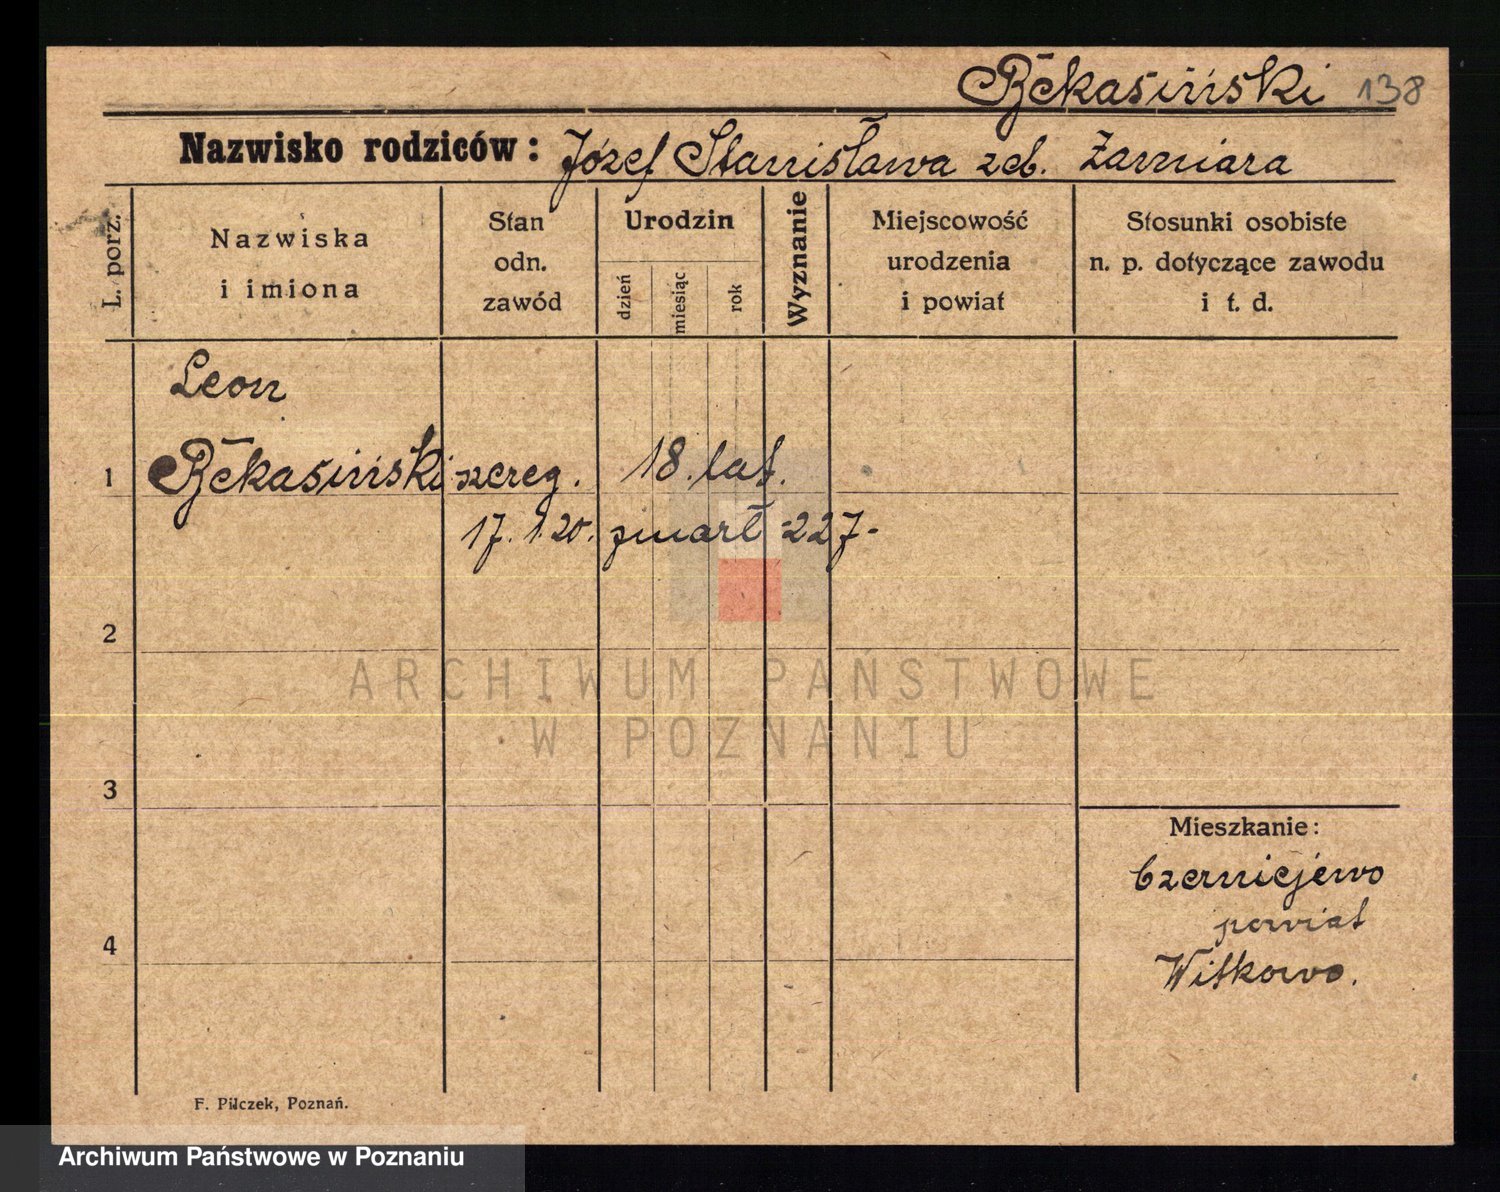 Bēkasiński 138
Nazwisko rodziców: Józef Stanisława zeb. Żarniara
L. porz.
Nazwiska
i imiona
Stan
odn.
zawód
Urodzin
dzień
miesiąc
rok
Wyznanie
Miejscowość
urodzenia
i powiat
Stosunki osobiste
n. p. dotyczące zawodu
i t. d.
Leon
1 Bēkasiński szereg. 18. lat.
17. 1. 20. zmarł -227-
2
ARCHIWUM PAŃSTWOWE
W POZNANIU
3
Mieszkanie:
Czerniejewo
powiat
4
Witkowo.
F. Pilczek, Poznań.
Archiwum Państwowe w Poznaniu